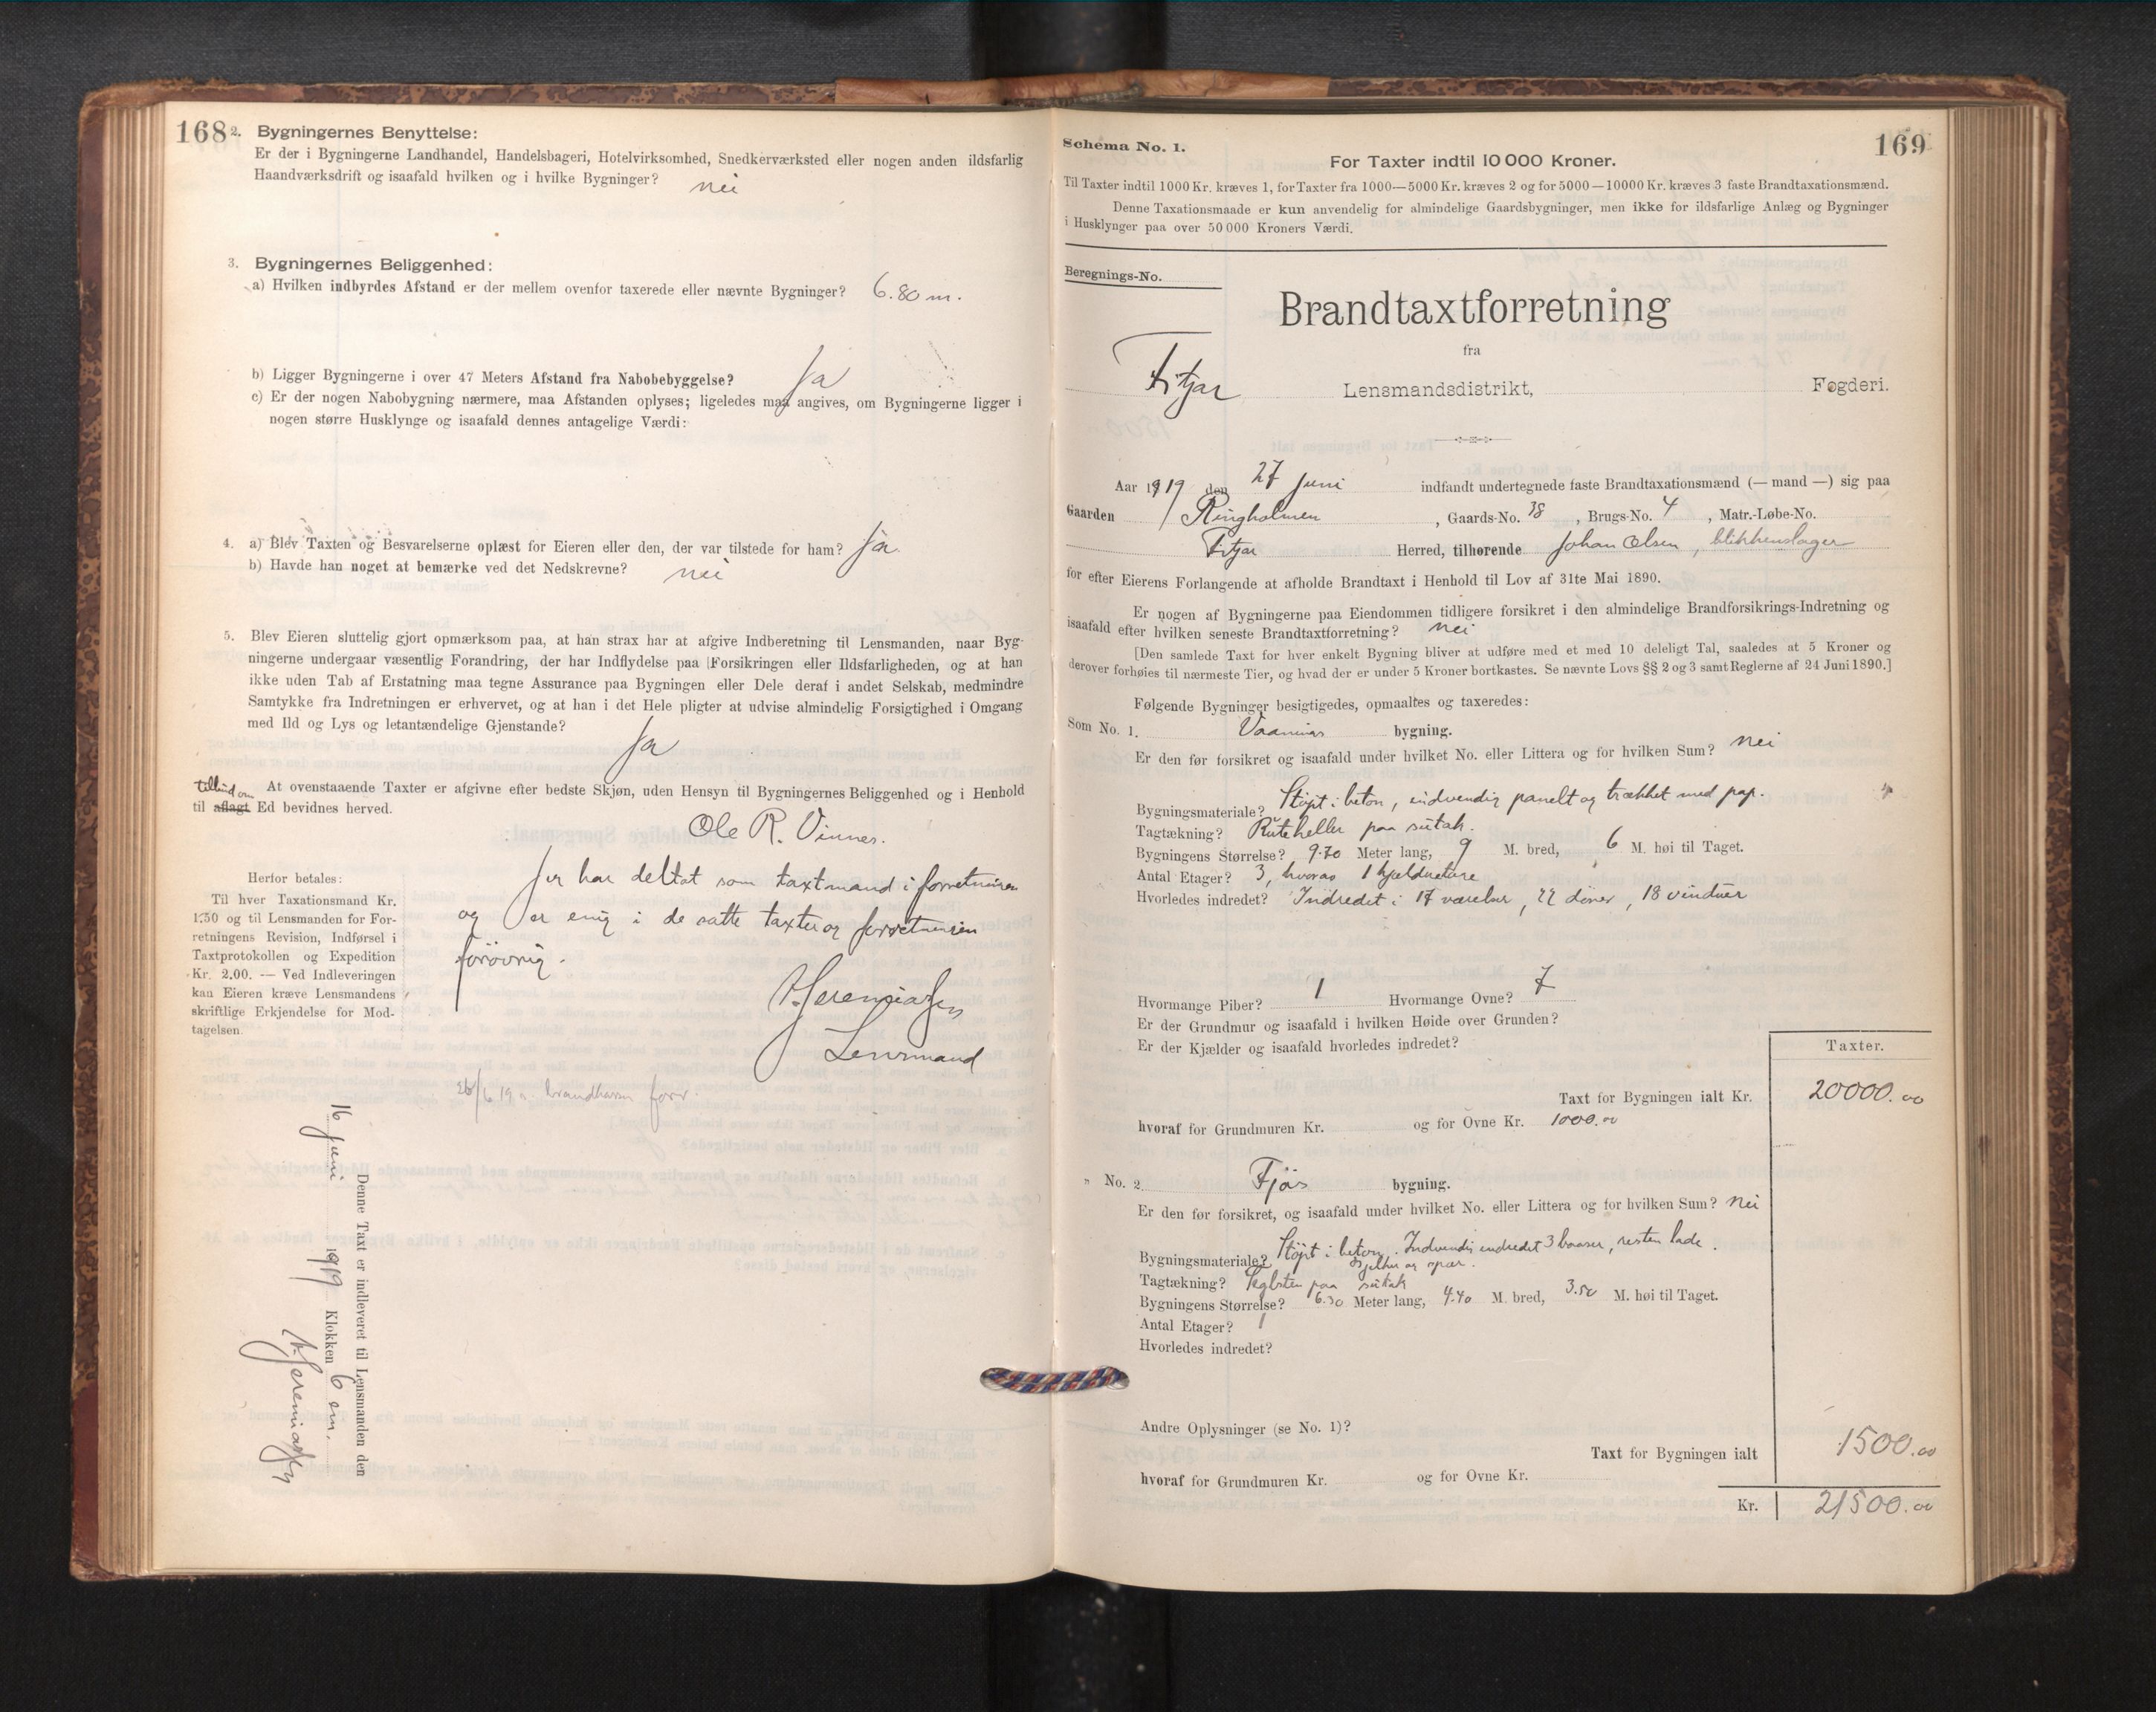 168
2. Bygningernes Benyttelse:
Er der i Bygningerne Landhandel, Handelsbageri, Hotelvirksomhed, Snedkerværksted eller nogen anden ildsfarlig
Haandværksdrift og isaafald hvilken og i hvilke Bygninger? nei
3. Bygningernes Beliggenhed:
a) Hvilken indbyrdes Afstand er der mellem ovenfor taxerede eller nævnte Bygninger? 6.80 m.
b) Ligger Bygningerne i over 47 Meters Afstand fra Nabobebyggelse? Ja
c) Er der nogen Nabobygning nærmere, maa Afstanden oplyses; ligeledes maa angives, om Bygningerne ligger i
nogen større Husklynge og isaafald dennes antagelige Værdi:
4. a) Blev Taxten og Besvarelserne oplæst for Eieren eller den, der var tilstede for ham? Ja.
b) Havde han noget at bemærke ved det Nedskrevne? nei
5. Blev Eieren sluttelig gjort opmærksom paa, at han strax har at afgive Indberetning til Lensmanden, naar Byg-
ningerne undergaar væsentlig Forandring, der har Indflydelse paa Forsikringen eller Ildsfarligheden, og at han
ikke uden Tab af Erstatning maa tegne Assurance paa Bygningen eller Dele deraf i andet Selskab, medmindre
Samtykke fra Indretningen er erhvervet, og at han i det Hele pligter at udvise almindelig Forsigtighed i Omgang
med Ild og Lys og letantændelige Gjenstande? Ja
tilbud om At ovenstaaende Taxter er afgivne efter bedste Skjøn, uden Hensyn til Bygningernes Beliggenhed og i Henhold
til aflagt Ed bevidnes herved.
Ole R. Vinnes.
Jeg har deltat som taxtmand i forretningen
og er enig i de satte taxter og forretningen
forøvrig.
Lensmand
Herfor betales:
Til hver Taxationsmand Kr.
1.50 og til Lensmanden for For-
retningens Revision, Indførsel i
Taxtprotokollen og Expedition
Kr. 2.00. — Ved Indleveringen
kan Eieren kræve Lensmandens
skriftlige Erkjendelse for Mod-
tagelsen.
26/6 19
Denne Taxt er indleveret til Lensmanden den
16 juni 1919 Klokken 6 em.
169
Schema No. 1.
For Taxter indtil 10 000 Kroner.
Til Taxter indtil 1000 Kr. kræves 1, for Taxter fra 1000—5000 Kr. kræves 2 og for 5000—10000 Kr. kræves 3 faste Brandtaxationsmænd.
Denne Taxationsmaade er kun anvendelig for almindelige Gaardsbygninger, men ikke for ildsfarlige Anlæg og Bygninger
i Husklynger paa over 50 000 Kroners Værdi.
Beregnings-No.
Brandtaxtforretning
fra
Fitjar Lensmandsdistrikt, Fogderi.
Aar 1919 den 27 juni indfandt undertegnede faste Brandtaxationsmænd (— mand —) sig paa
Gaarden Ringholmen, Gaards-No. 38, Brugs-No. 4, Matr.-Løbe-No.
Fitjar Herred, tilhørende Johan Olsen, blikkenslager
for efter Eierens Forlangende at afholde Brandtaxt i Henhold til Lov af 31te Mai 1890.
Er nogen af Bygningerne paa Eiendommen tidligere forsikret i den almindelige Brandforsikrings-Indretning og
isaafald efter hvilken seneste Brandtaxtforretning? nei
[Den samlede Taxt for hver enkelt Bygning bliver at udføre med et med 10 deleligt Tal, saaledes at 5 Kroner og
derover forhøies til nærmeste Tier, og hvad der er under 5 Kroner bortkastes. Se nævnte Lovs §§ 2 og 3 samt Reglerne af 24 Juni 1890.]
Følgende Bygninger besigtigedes, opmaaltes og taxeredes:
Som No. 1. Vaanings bygning.
Er den før forsikret og isaafald under hvilket No. eller Littera og for hvilken Sum? nei
Bygningsmateriale? Støpt i beton, indvendig panelt og trækket med pap.
Tagtækning? Rutheller paa sutak.
Bygningens Størrelse? 9.70 Meter lang, 9 M. bred, 6 M. høi til Taget.
Antal Etager? 3, hvorav 1 kjælderetage
Hvorledes indredet? Indredet i 17 værelser, 22 dører, 18 vinduer
Hvormange Piber? 1 Hvormange Ovne? 7
Er der Grundmur og isaafald i hvilken Høide over Grunden?
Er der Kjælder og isaafald hvorledes indredet?
Taxter.
Taxt for Bygningen ialt Kr. 20000.00
hvoraf for Grundmuren Kr. og for Ovne Kr. 1000.00
" No. 2. Fjøs bygning.
Er den før forsikret, og isaafald under hvilket No. eller Littera og for hvilken Sum? nei
Bygningsmateriale? Støpt i beton. Indvendig indredet 3 baaser, resten lade.
Tagtækning? Teglsten paa sutak
Bygningens Størrelse? 6.30 Meter lang, 4.40 M. bred, 3.50 M. høi til Taget.
Antal Etager? 1
Hvorledes indredet?
Andre Oplysninger (se No. 1)?
Taxt for Bygningen ialt 1500.00
hvoraf for Grundmuren Kr. og for Ovne Kr.
Kr. 21500.00